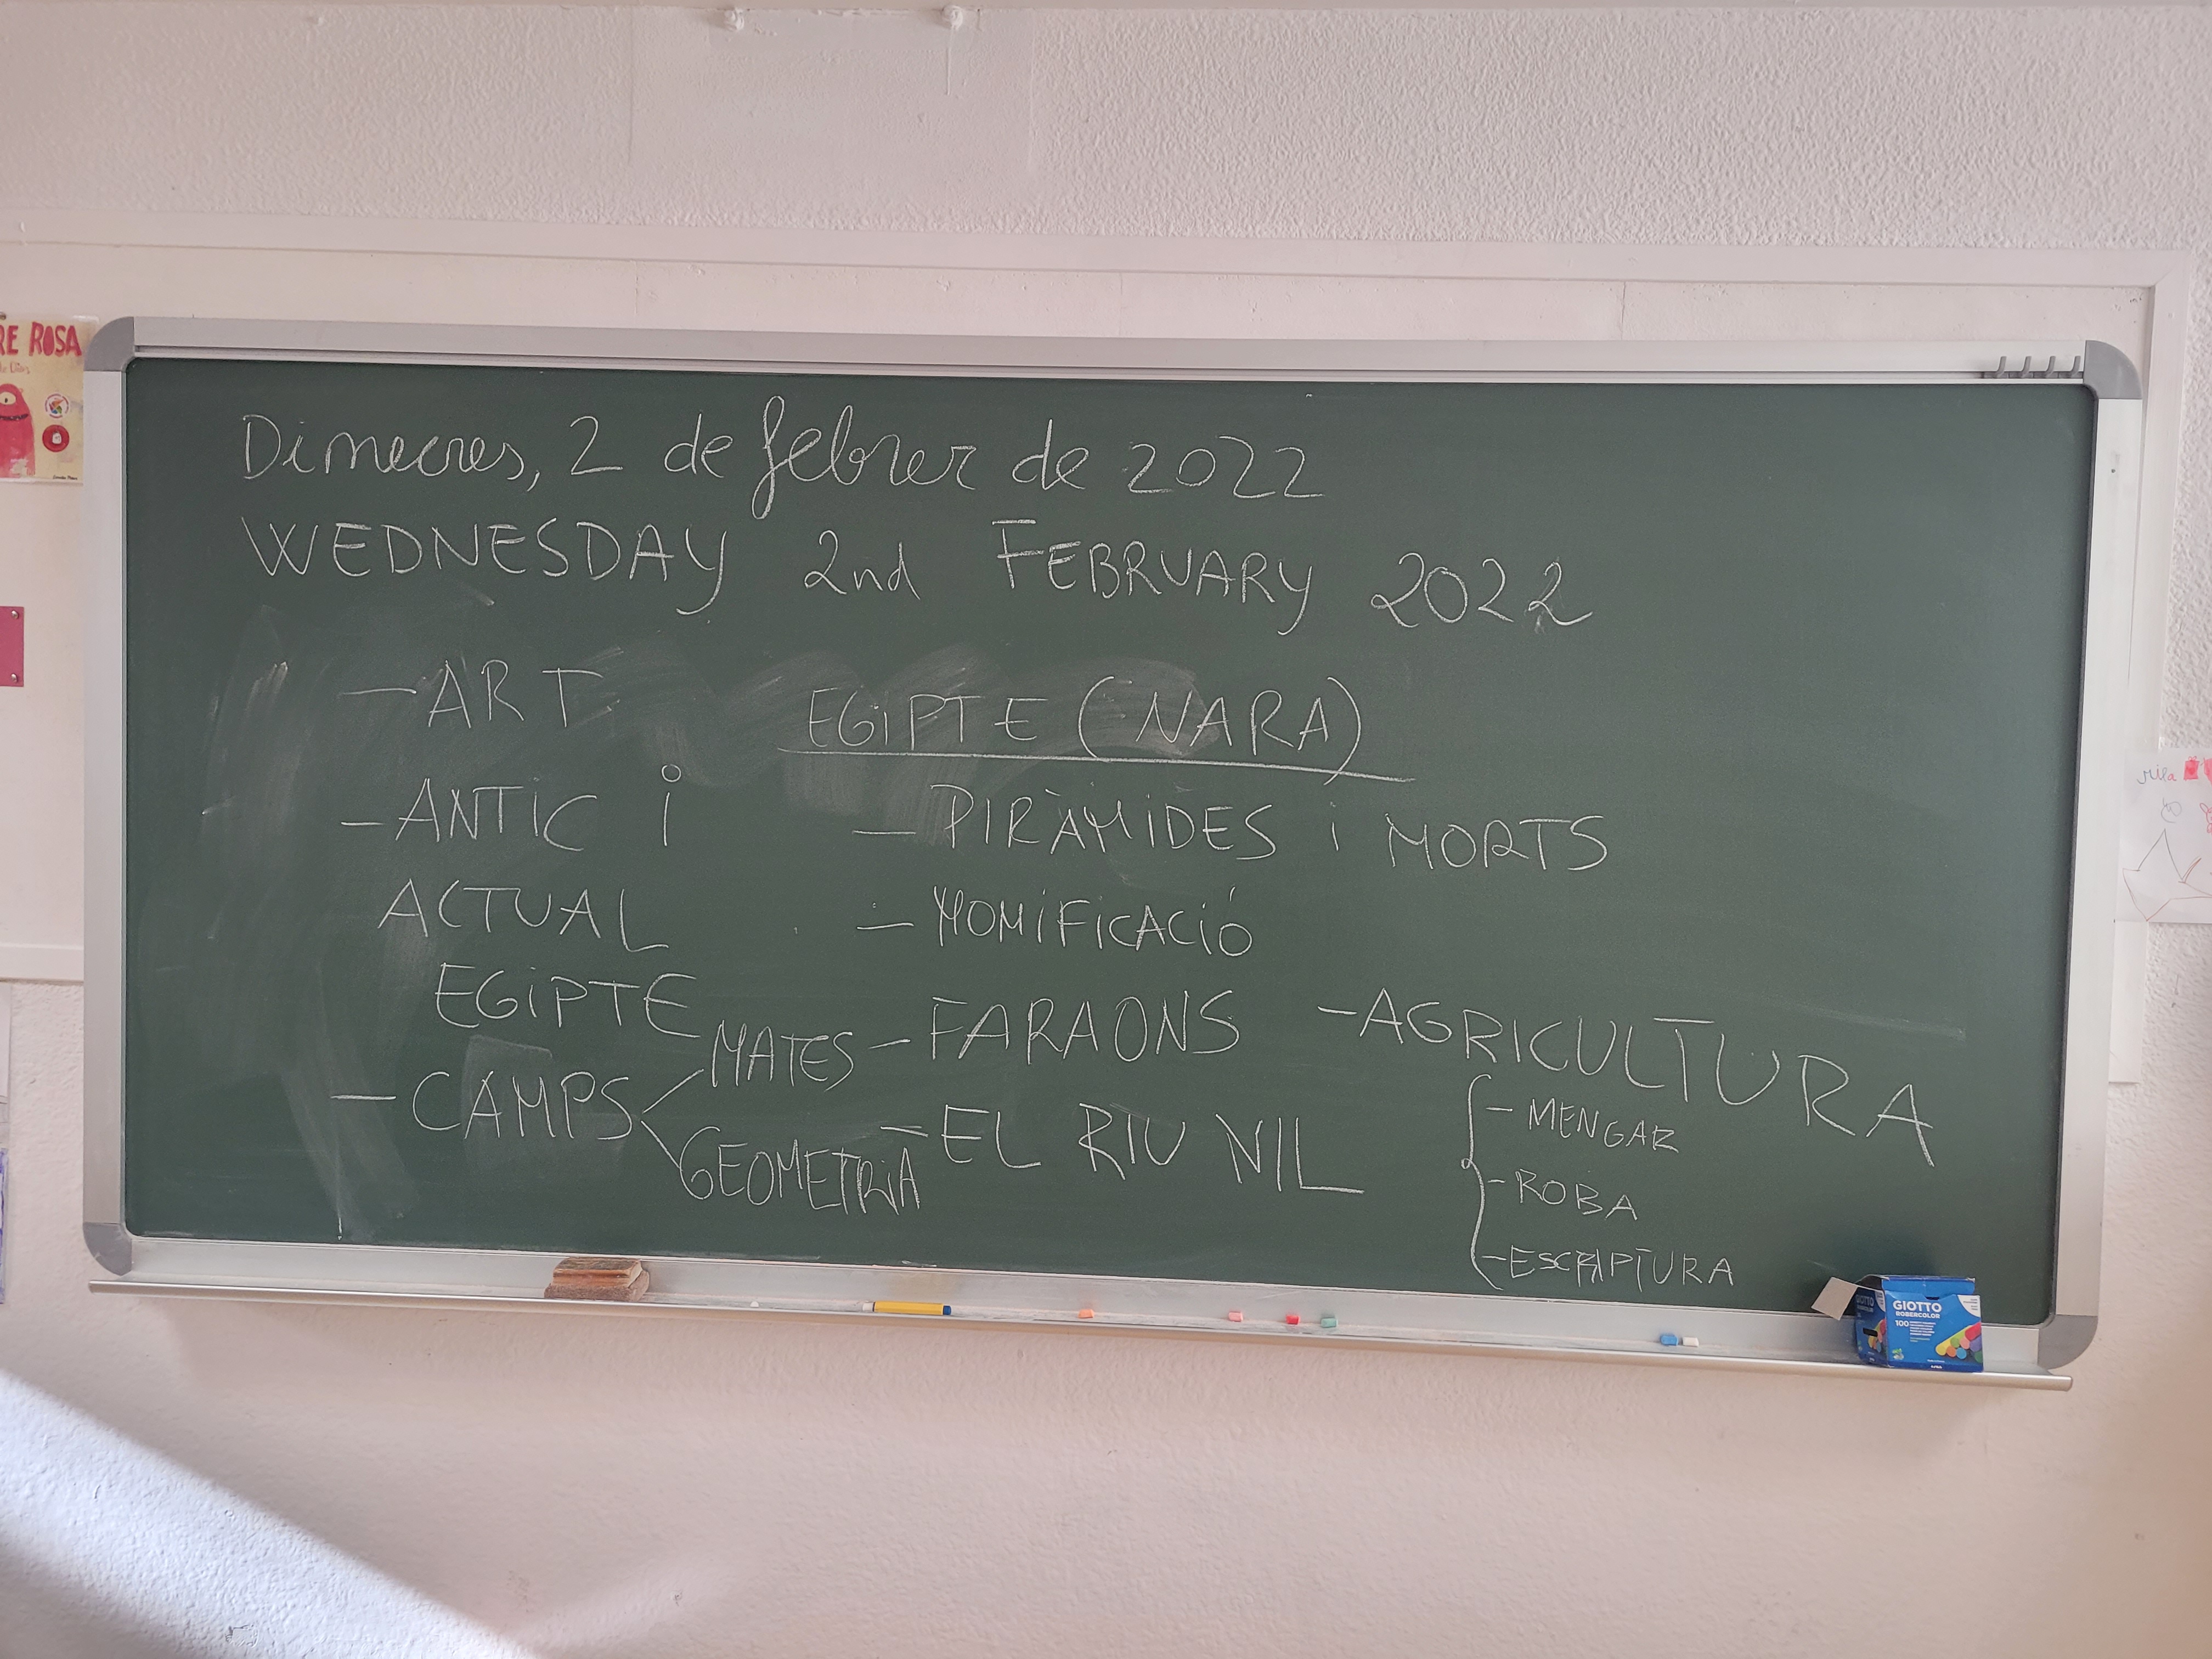 RE ROSA
Dimecres, 2 de febrer de 2022
WEDNESDAY 2nd FEBRUARY 2022
EGIPTE (NARA)
- ART
- ANTIC i
ACTUAL
EGIPTE
- CAMPS
MATES
GEOMETRIA
- PIRÀMIDES i MORTS
- MOMIFICACIÓ
- FARAONS
- EL RIU NIL
- AGRICULTURA
- MENGAR
- ROBA
- ESCRIPTURA
GIOTTO
ROBERCOLOR
100